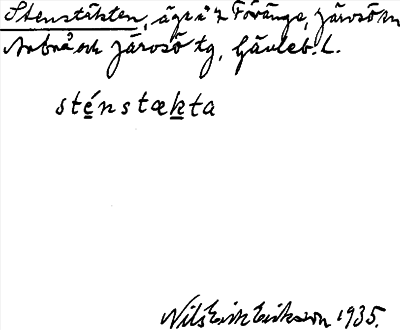 Stenstäkten, ägor i Föränge, Järvsö sn
Arbrå och Järvsö tg, Gävleb. L.
sténstækta
Nils Erik Eriksson 1935.